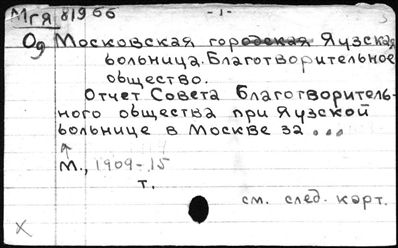 Мгя 81966 -1-
Од Московская городская Яузская
больница. Благотворительное
общество.
Отчет Совета Благотворитель-
ного общества при Яузской
больнице в Москве за ...
М., 1909-15
т.
см. след. карт.
X